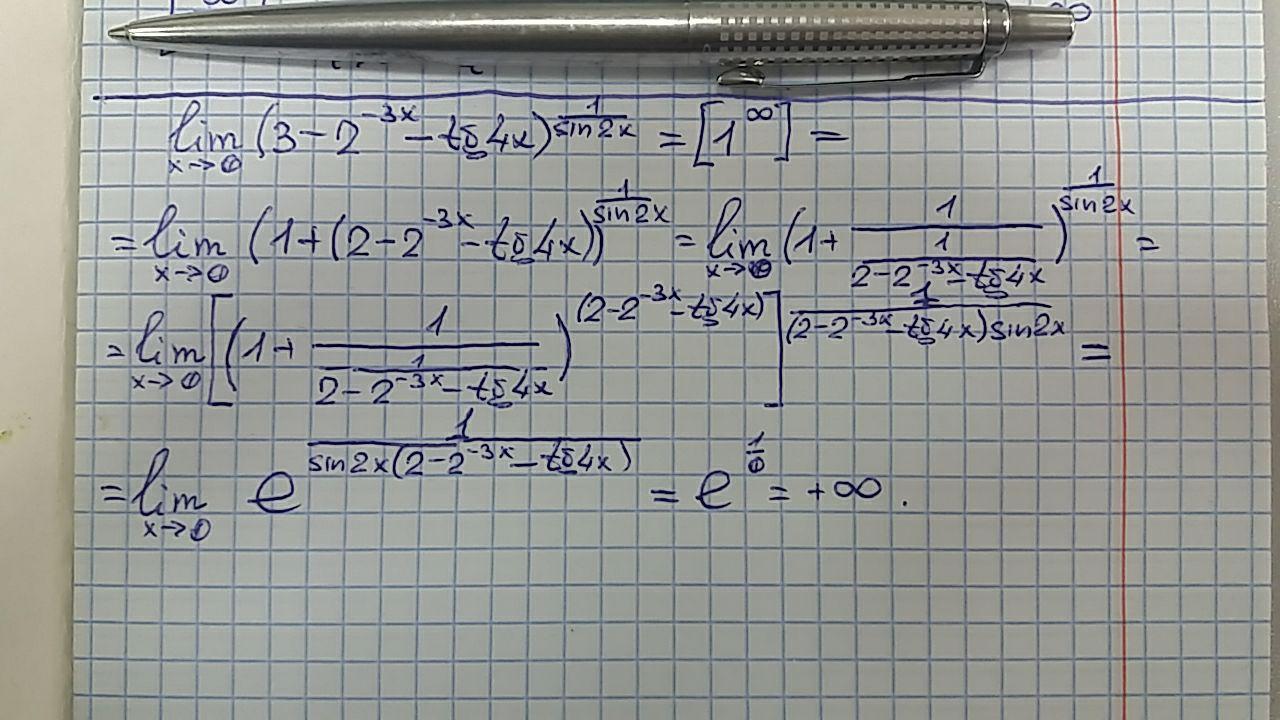 lim x→0 (3 - 2^{-3x} - tg 4x)^{\frac{1}{sin 2x}} = [1^∞] =
= lim x→0 (1 + (2 - 2^{-3x} - tg 4x))^{\frac{1}{sin 2x}} = lim x→0 (1 + \frac{1}{\frac{1}{2 - 2^{-3x} - tg 4x}})^{\frac{1}{sin 2x}} =
= lim x→0 [(1 + \frac{1}{\frac{1}{2 - 2^{-3x} - tg 4x}})^{(2 - 2^{-3x} - tg 4x)}]^{\frac{1}{(2 - 2^{-3x} - tg 4x) sin 2x}} =
= lim x→0 e^{\frac{1}{sin 2x (2 - 2^{-3x} - tg 4x)}} = e^{\frac{1}{0}} = +∞ .